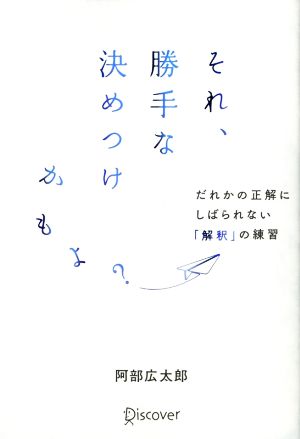 それ、
勝手な
決めつけ
かもよ?
だれかの正解に
しばられない
「解釈」の練習
阿部広太郎
Discover